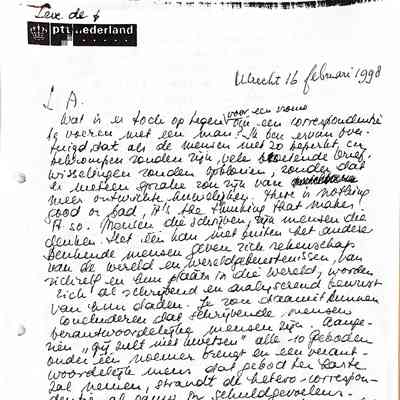 Leve de f
ptt nederland
Utrecht 16 februari 1998
L A.
Wat is er toch op tegen voor een vrouw om een correspondentie
te voeren met een man? Ik ben ervan over-
tuigd dat als de mensen niet zo beperkt en
bekrompen zouden zijn, vele boeiende brief-
wisselingen zouden opbloeien, zonder dat
er meteen sprake zou zijn van
meer ontwrichte huwelijken. There is nothing
good or bad, it's the thinking that makes
it so. Mensen die schrijven, zijn mensen die
denken. Het één kan niet buiten het andere
Denkende mensen geven zich rekenschap
van de wereld en wereldgebeurtenissen, van
zichzelf en hun plaats in die wereld, worden
zich al schrijvend en analyserend bewust
van hun daden. Je zou daaruit kunnen
concluderen dat schrijvende mensen
verantwoordelijke mensen zijn. Aange-
zien "gij zult niet kwetsen" alle 10 geboden
onder één noemer brengt en een verant-
woordelijk mens dat gebod ter harte
zal nemen, strandt de hetero-correspon-
dentie al gauw in schuldgevoelens.